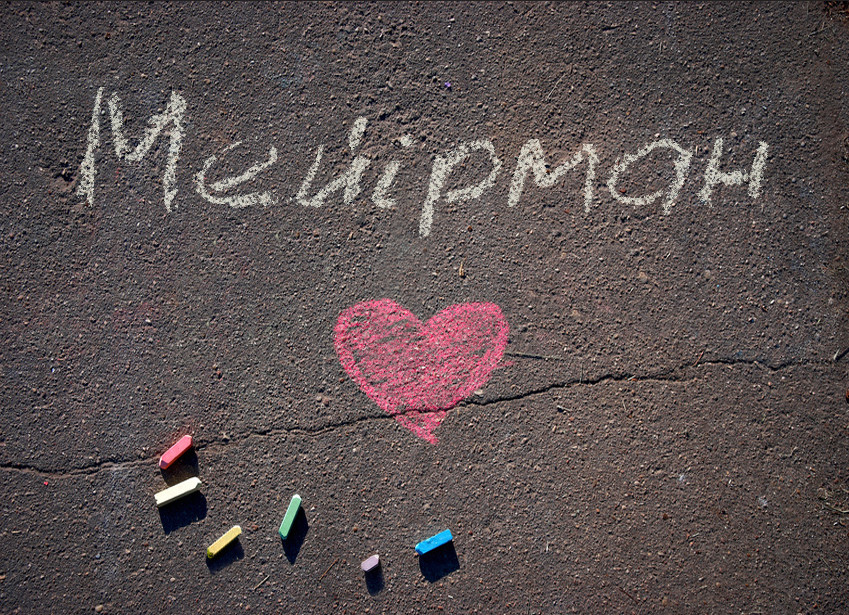 Мейірман